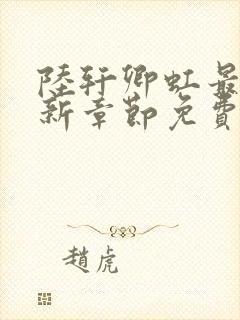 陸轩卿虹最
新章節免費
趙虎